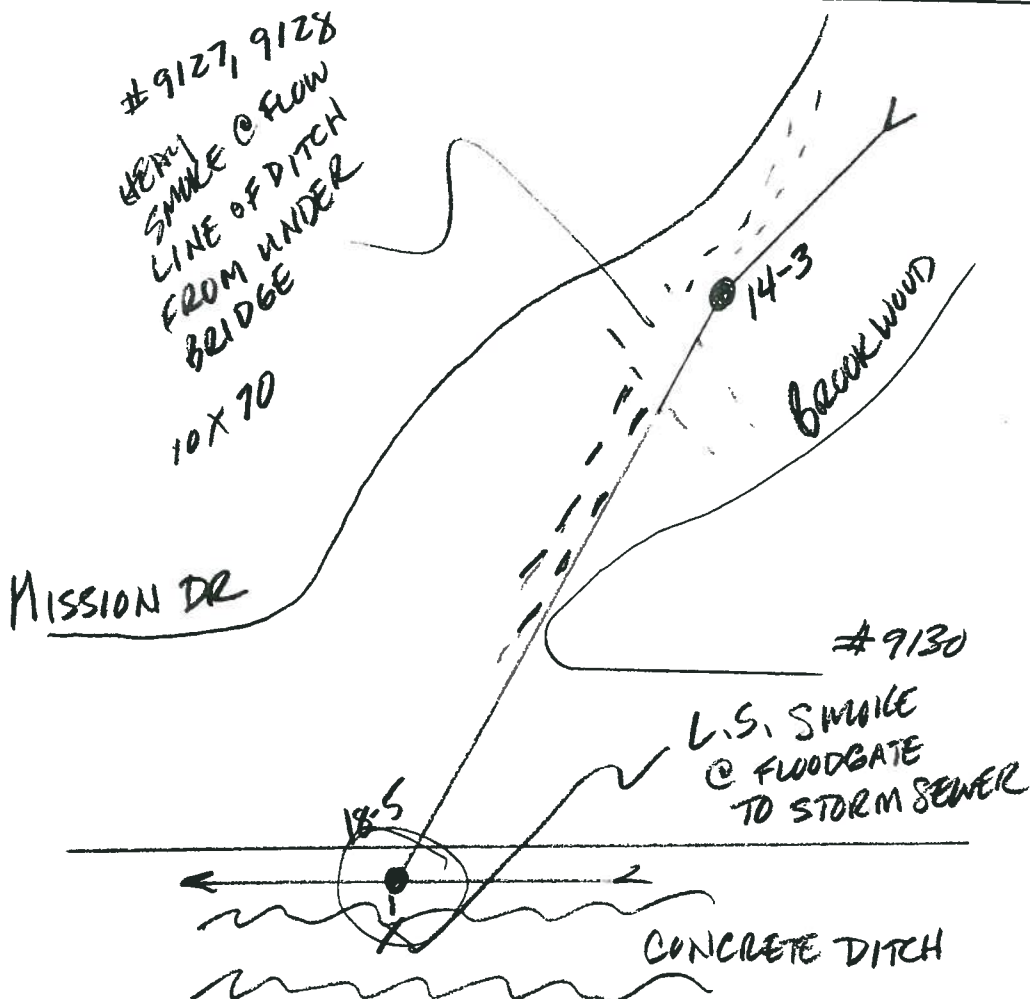 # 9127, 9128
HEAVY
SMOKE @ FLOW
LINE OF DITCH
FROM UNDER
BRIDGE
10 X 70
14-3
BROOKWOOD
MISSION DR
# 9130
L.S. SMOKE
@ FLOODGATE
TO STORM SEWER
18-5
CONCRETE DITCH